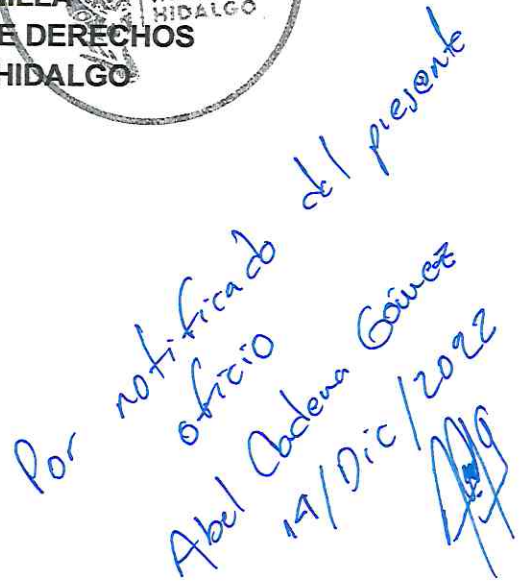 HIDALGO
E DERECHOS
HIDALGO
Por notificado del presente
oficio
Abel Cadena Gómez
14/Dic/2022